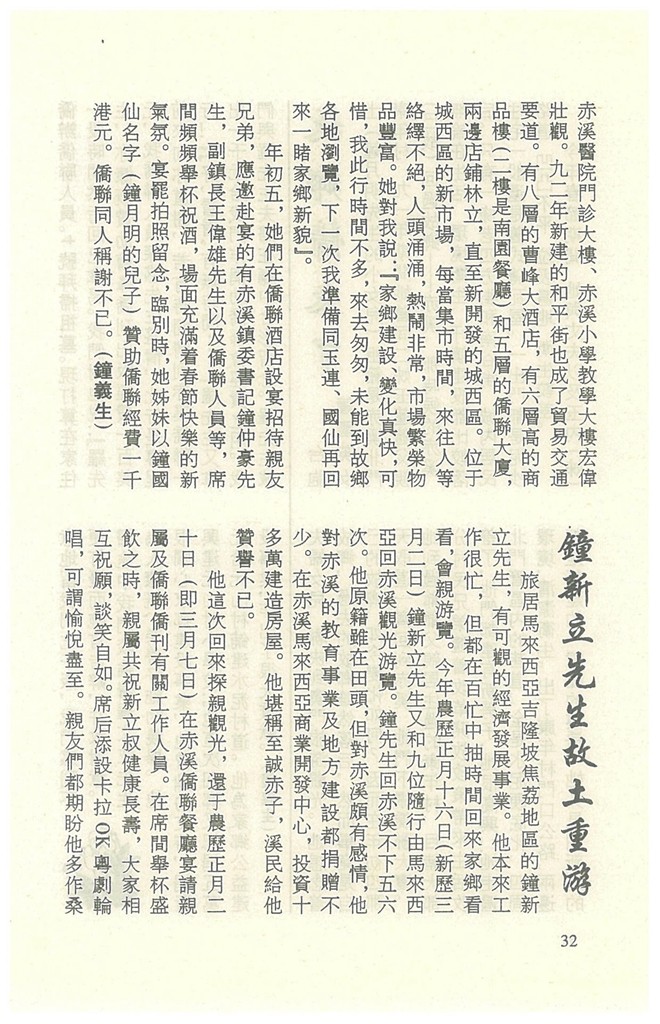 赤溪醫院門診大樓、赤溪小學教學大樓宏偉
壯觀。九二年新建的和平街也成了貿易交通
要道。有八層的曹峰大酒店，有六層高的商
品樓（二樓是南園餐廳）和五層的僑聯大廈，
兩邊店鋪林立，直至新開發的城西區。位于
城西區的新市場，每當集市時間，來往人等
絡繹不絕，人頭涌涌，熱鬧非常，市場繁榮物
品豐富。她對我說：『家鄉建設、變化真快，可
惜，我此行時間不多，來去匆匆，未能到故鄉
各地瀏覽，下一次我準備同玉連、國仙再回
來一睹家鄉新貌』。
年初五，她們在僑聯酒店設宴招待親友
兄弟，應邀赴宴的有赤溪鎮委書記鐘仲豪先
生，副鎮長王偉雄先生以及僑聯人員等，席
間頻頻舉杯祝酒，場面充滿着春節快樂的新
氣氛。宴罷拍照留念，臨別時，她姊妹以鐘國
仙名字（鐘月明的兒子）贊助僑聯經費一千
港元。僑聯同人稱謝不已。（鐘義生）
鐘新立先生故土重游
旅居馬來西亞吉隆坡焦荔地區的鐘新
立先生，有可觀的經濟發展事業。他本來工
作很忙，但都在百忙中抽時間回來家鄉看
看，會親游覽。今年農歷正月十六日（新歷三
月二日）鐘新立先生又和九位隨行由馬來西
亞回赤溪觀光游覽。鐘先生回赤溪不下五六
次。他原籍雖在田頭，但對赤溪頗有感情，他
對赤溪的教育事業及地方建設都捐贈不
少。在赤溪馬來西亞商業開發中心，投資十
多萬建造房屋。他堪稱至誠赤子，溪民給他
贊譽不已。
他這次回來探親觀光，還于農歷正月二
十日（即三月七日）在赤溪僑聯餐廳宴請親
屬及僑聯僑刊有關工作人員。在席間舉杯盛
飲之時，親屬共祝新立叔健康長壽，大家相
互祝願，談笑自如。席后添設卡拉OK粵劇輪
唱，可謂愉悅盡至。親友們都期盼他多作桑
32